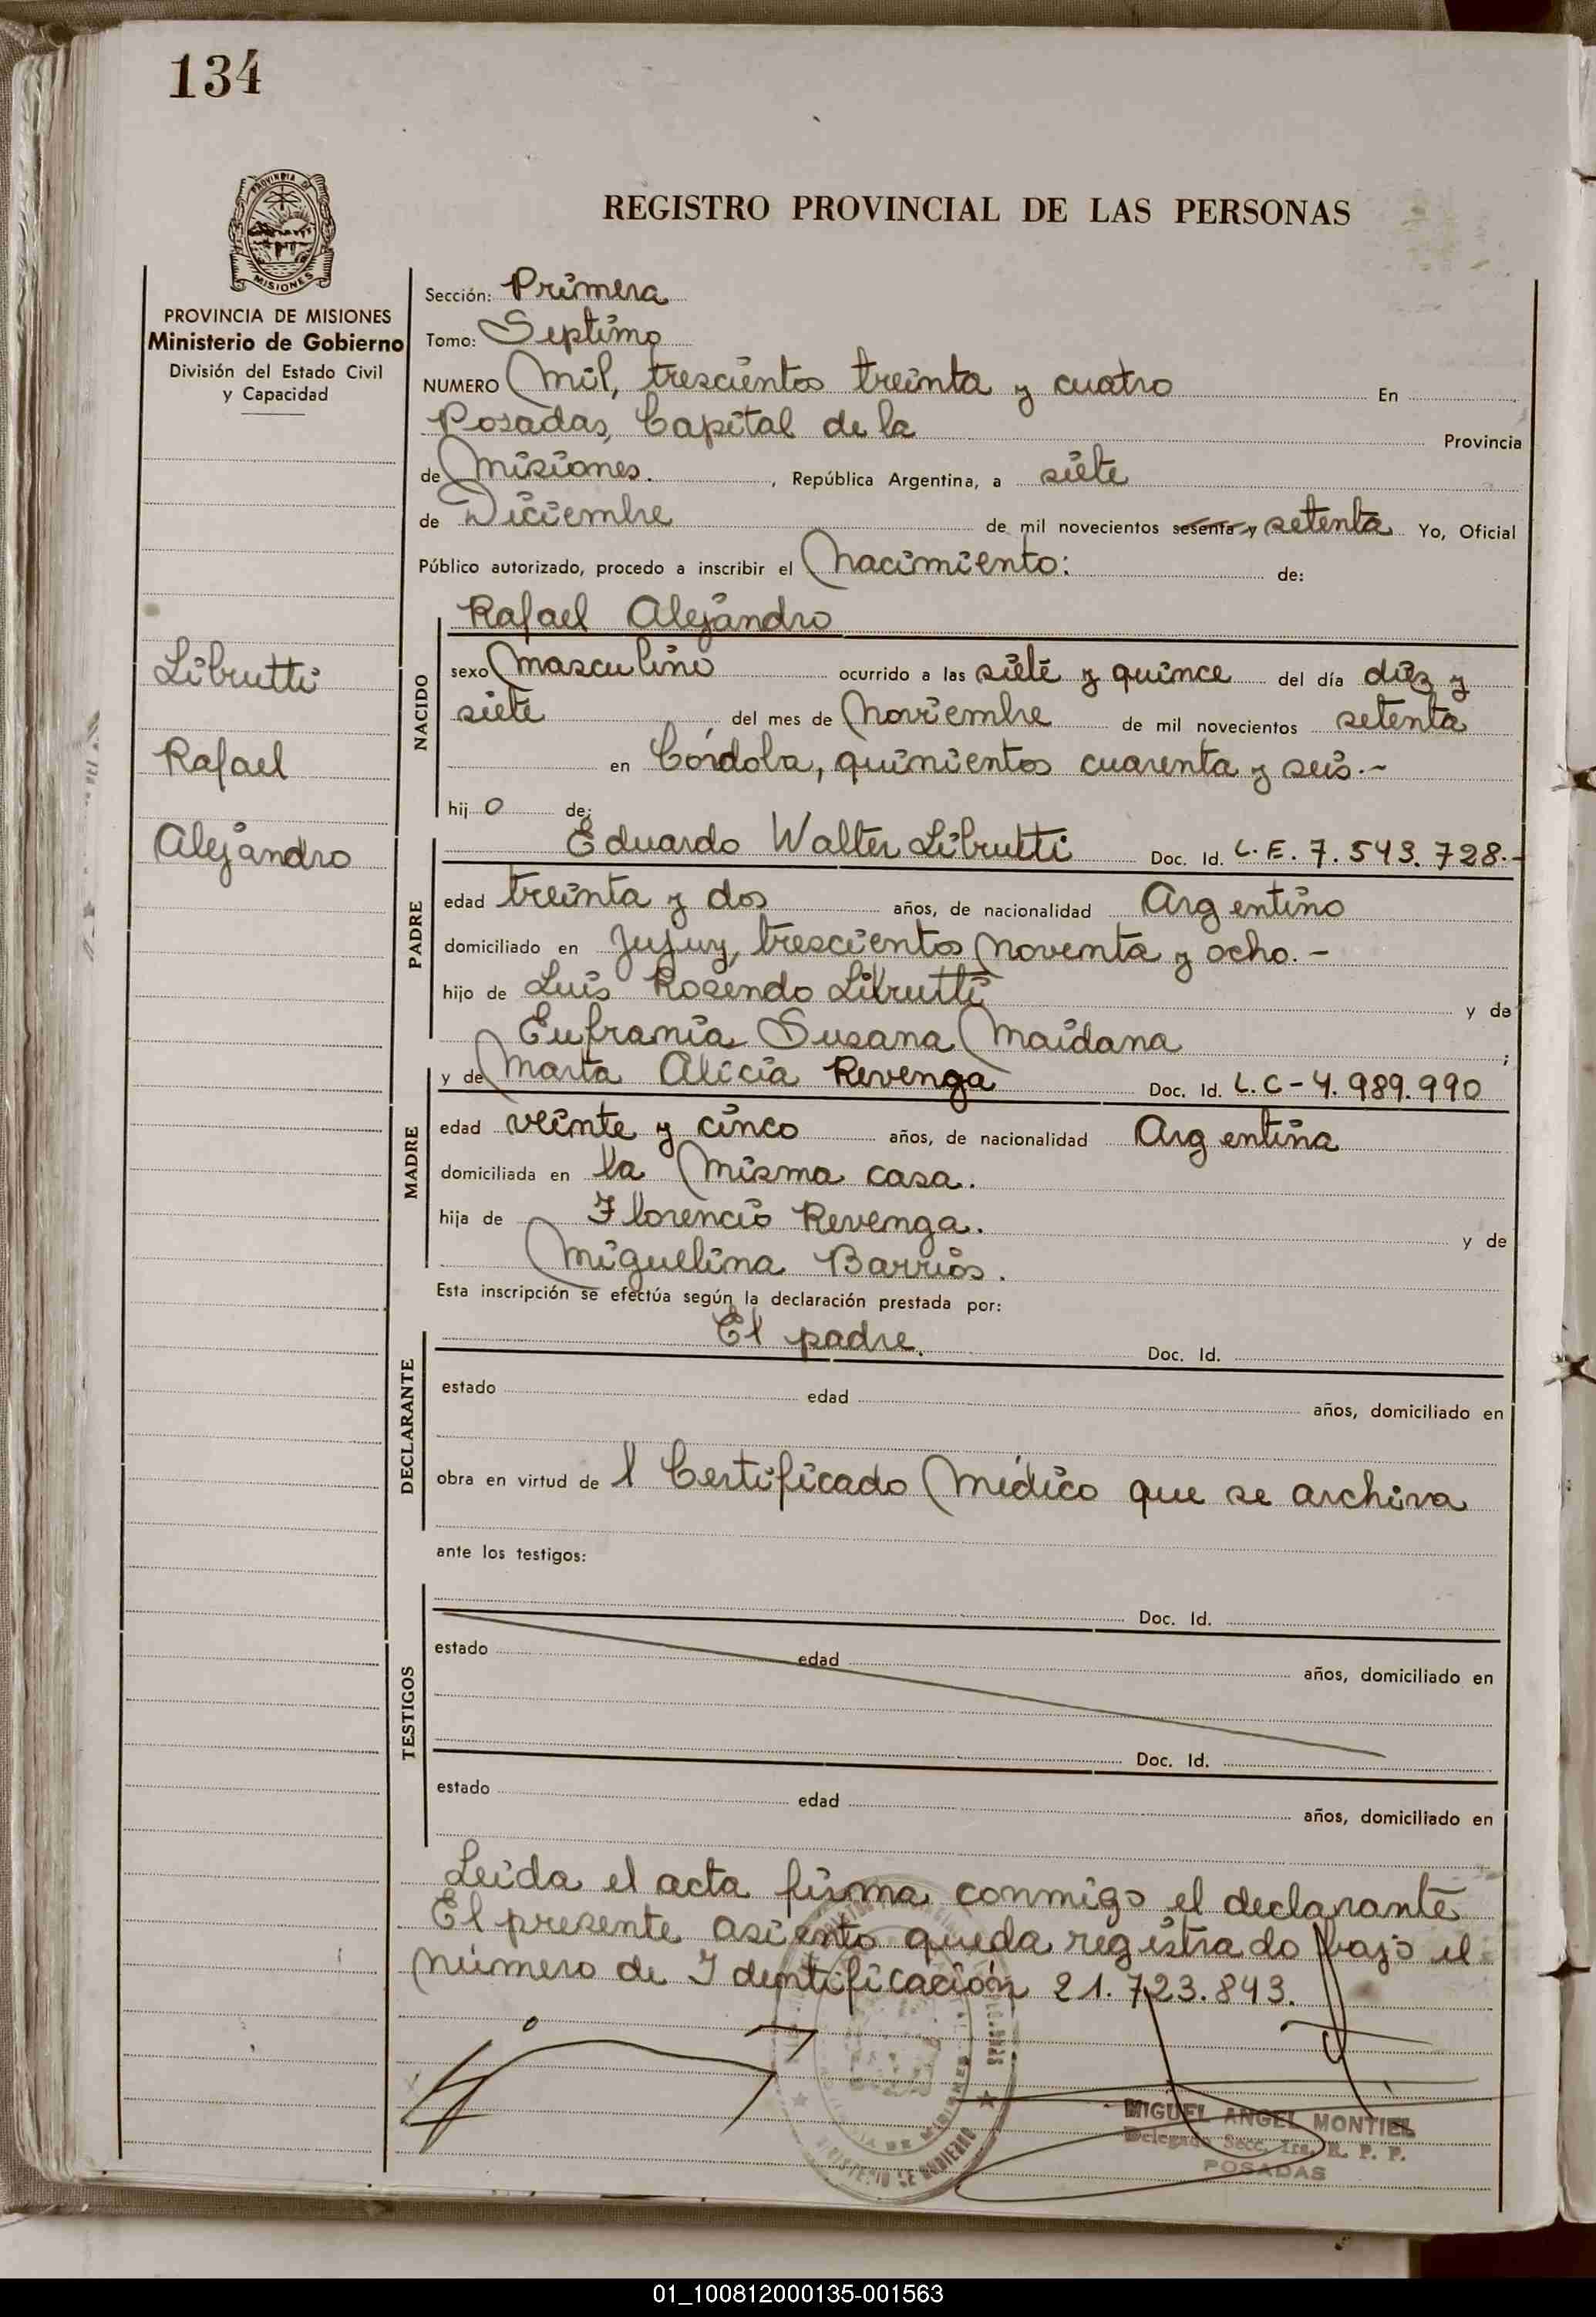 134
PROVINCIA DE
MISIONES
REGISTRO PROVINCIAL DE LAS PERSONAS
PROVINCIA DE MISIONES
Ministerio de Gobierno
División del Estado Civil
y Capacidad
Librutti
Rafael
Alejandro
Sección: Primera
Tomo: Septimo
NUMERO Mil, trescientos treinta y cuatro En
Posadas, Capital de la Provincia
de Misiones. , República Argentina, a siete
de Diciembre de mil novecientos sesenta y setenta Yo, Oficial
Público autorizado, procedo a inscribir el Nacimiento: de:
NACIDO
Rafael Alejandro
sexo Masculino ocurrido a las siete y quince del día diez y
siete del mes de Noviembre de mil novecientos setenta
en Córdoba, quinientos cuarenta y seis.-
hij o de:
PADRE
Eduardo Walter Librutti Doc. Id. L.E. 7.543.728.-
edad treinta y dos años, de nacionalidad Argentino
domiciliado en Jujuy, trescientos noventa y ocho.-
hijo de Luis Rosendo Librutti y de
Eufrania Susana Maidana ;
MADRE
y de Marta Alicia Revenga Doc. Id. L.C-4.989.990
edad veinte y cinco años, de nacionalidad Argentina
domiciliada en la misma casa.
hija de Florencio Revenga. y de
Miguelina Barrios.
Esta inscripción se efectúa según la declaración prestada por:
DECLARANTE
El padre. Doc. Id.
estado edad años, domiciliado en
obra en virtud de l Certificado Médico que se archiva
ante los testigos:
TESTIGOS
Doc. Id.
estado edad años, domiciliado en
Doc. Id.
estado edad años, domiciliado en
Leida el acta firma conmigo el declarante
El presente asiento queda registrado bajo el
número de Identificación 21.723.843.
MINISTERIO DE GOBIERNO
MIGUEL ANGEL MONTIEL
Delegado Secc. 1ra. R. P. P.
POSADAS
01_100812000135-001563